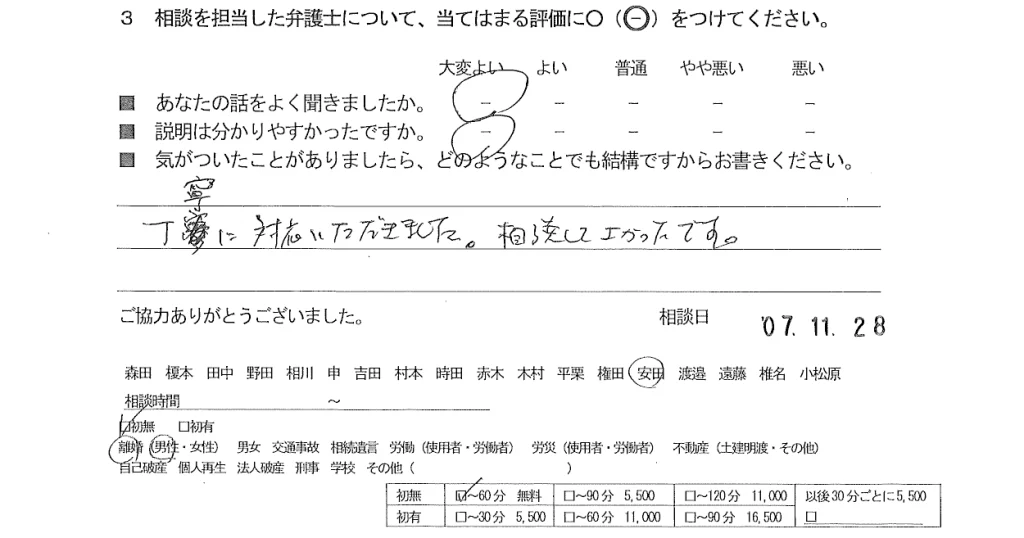 3 相談を担当した弁護士について、当てはまる評価に○（㊀）をつけてください。
大変よい よい 普通 やや悪い 悪い
■ あなたの話をよく聞きましたか。 － － － － －
■ 説明は分かりやすかったですか。 － － － － －
■ 気がついたことがありましたら、どのようなことでも結構ですからお書きください。
寧
丁に対応いただきました。相談してよかったです。
ご協力ありがとうございました。 相談日 '07.11.28
森田 榎本 田中 野田 相川 申 吉田 村本 時田 赤木 木村 平栗 権田 安田 渡邉 遠藤 椎名 小松原
相談時間 ～
□初無 □初有
離婚（男性・女性） 男女 交通事故 相続遺言 労働（使用者・労働者） 労災（使用者・労働者） 不動産（土建明渡・その他）
自己破産 個人再生 法人破産 刑事 学校 その他（ ）
初無 ☑～60分 無料 □～90分 5,500 □～120分 11,000 以後30分ごとに5,500
初有 □～30分 5,500 □～60分 11,000 □～90分 16,500 □